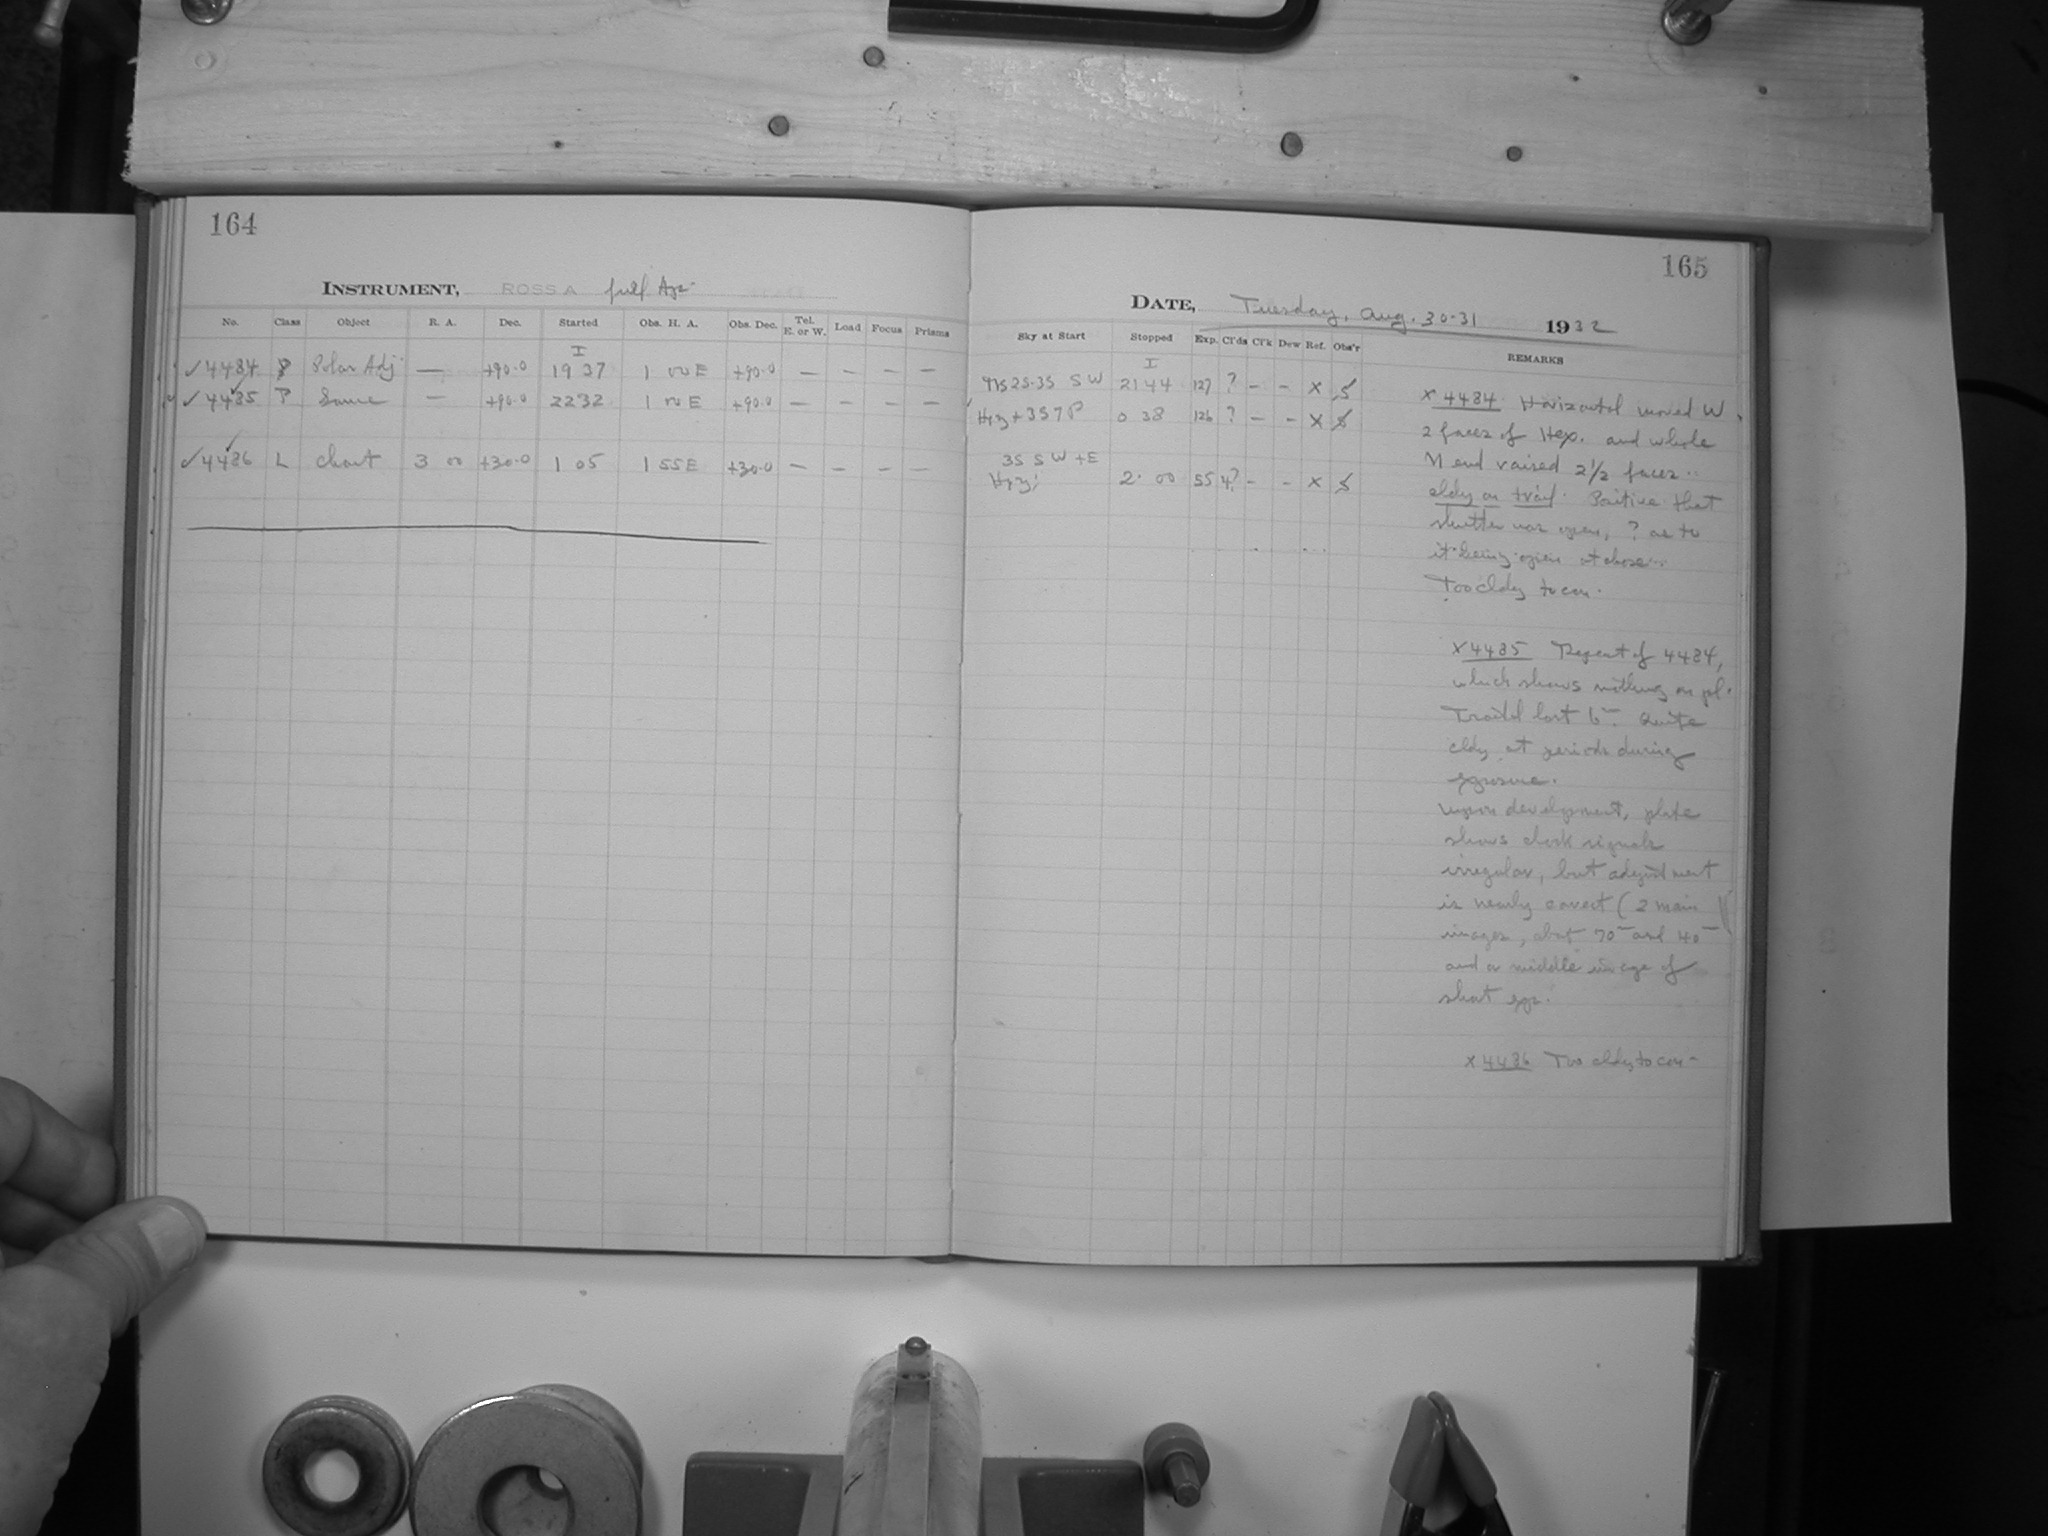 164
INSTRUMENT, ROSS A full Apr.
No. Class Object R. A. Dec. Started Obs. H. A. Obs. Dec. Tel. E. or W. Load Focus Prisms
I
✓4484 P Polar Adj — +90.0 19 37 1 00 E +90.0 — — — —
✓4485 P Same — +90.0 22 32 1 00 E +90.0 — — — —
✓4486 L chart 3 00 +30.0 1 05 1 55 E +30.0 — — — —
165
DATE, Tuesday, Aug. 30-31 1932
Sky at Start Stopped Exp. Cl'ds Cl'k Dew Ref. Obs'r REMARKS
I
SW 21 44 127 ? – – x S
Hzy + 0 38 126 ? – – x S
3S SW + E
Hzy 2 00 55 4? – – x S
x 4484 Horizontal moved W
2 faces of Hex. and whole
N end raised 2½ faces
cldy on trail. Positive that
shutter was open, ? as to
it being open at close
Too cldy to con.
x 4485 Repeat of 4484,
which shows nothing on pl.
Trailed last 6m. Quite
cldy at periods during
exposure.
Upon development, plate
shows clock signals
irregular, but adjustment
is nearly correct (2 main
images, about 70m and 40m
and a middle image of
short exp.
x 4486 Too cldy to con–